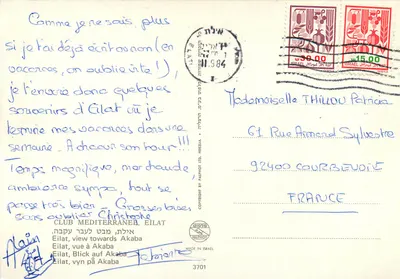 Comme je ne sais plus
si je t'ai déjà écrit ou non (en
vacances, on oublie vite !),
je t'envoie donc quelques
souvenirs d'Eilat où je
termine mes vacances dans une
semaine. A chacun son tour !!!
Temps magnifique, marchande,
ambiance sympa, tout se
passe très bien. Grosses bises
sans oublier Christophe
Alain
אילת
84
30.00
15.00
Mademoiselle THILLOU Patricia
61 Rue Armand Sylvestre
92400 COURBEVOIE
FRANCE
CLUB MEDITERRANEE EILAT
אילת, מבט לעבר עקבה.
Eilat, view towards Akaba
Eilat, vue à Akaba
Eilat, Blick auf Akaba
Eilat, vyn på Akaba
MADE IN ISRAEL
3701